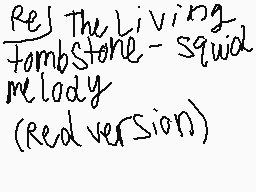 Re) The Living
Tombstone - squid
melody
(Red version)